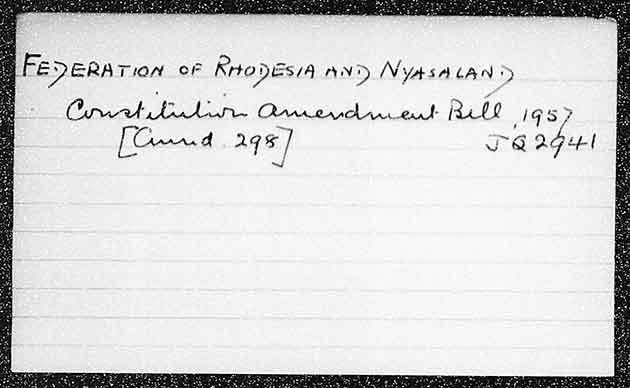 FEDERATION OF RHODESIA AND NYASALAND
Constitution Amendment Bill, 1957
[Cmnd. 298] JQ2941